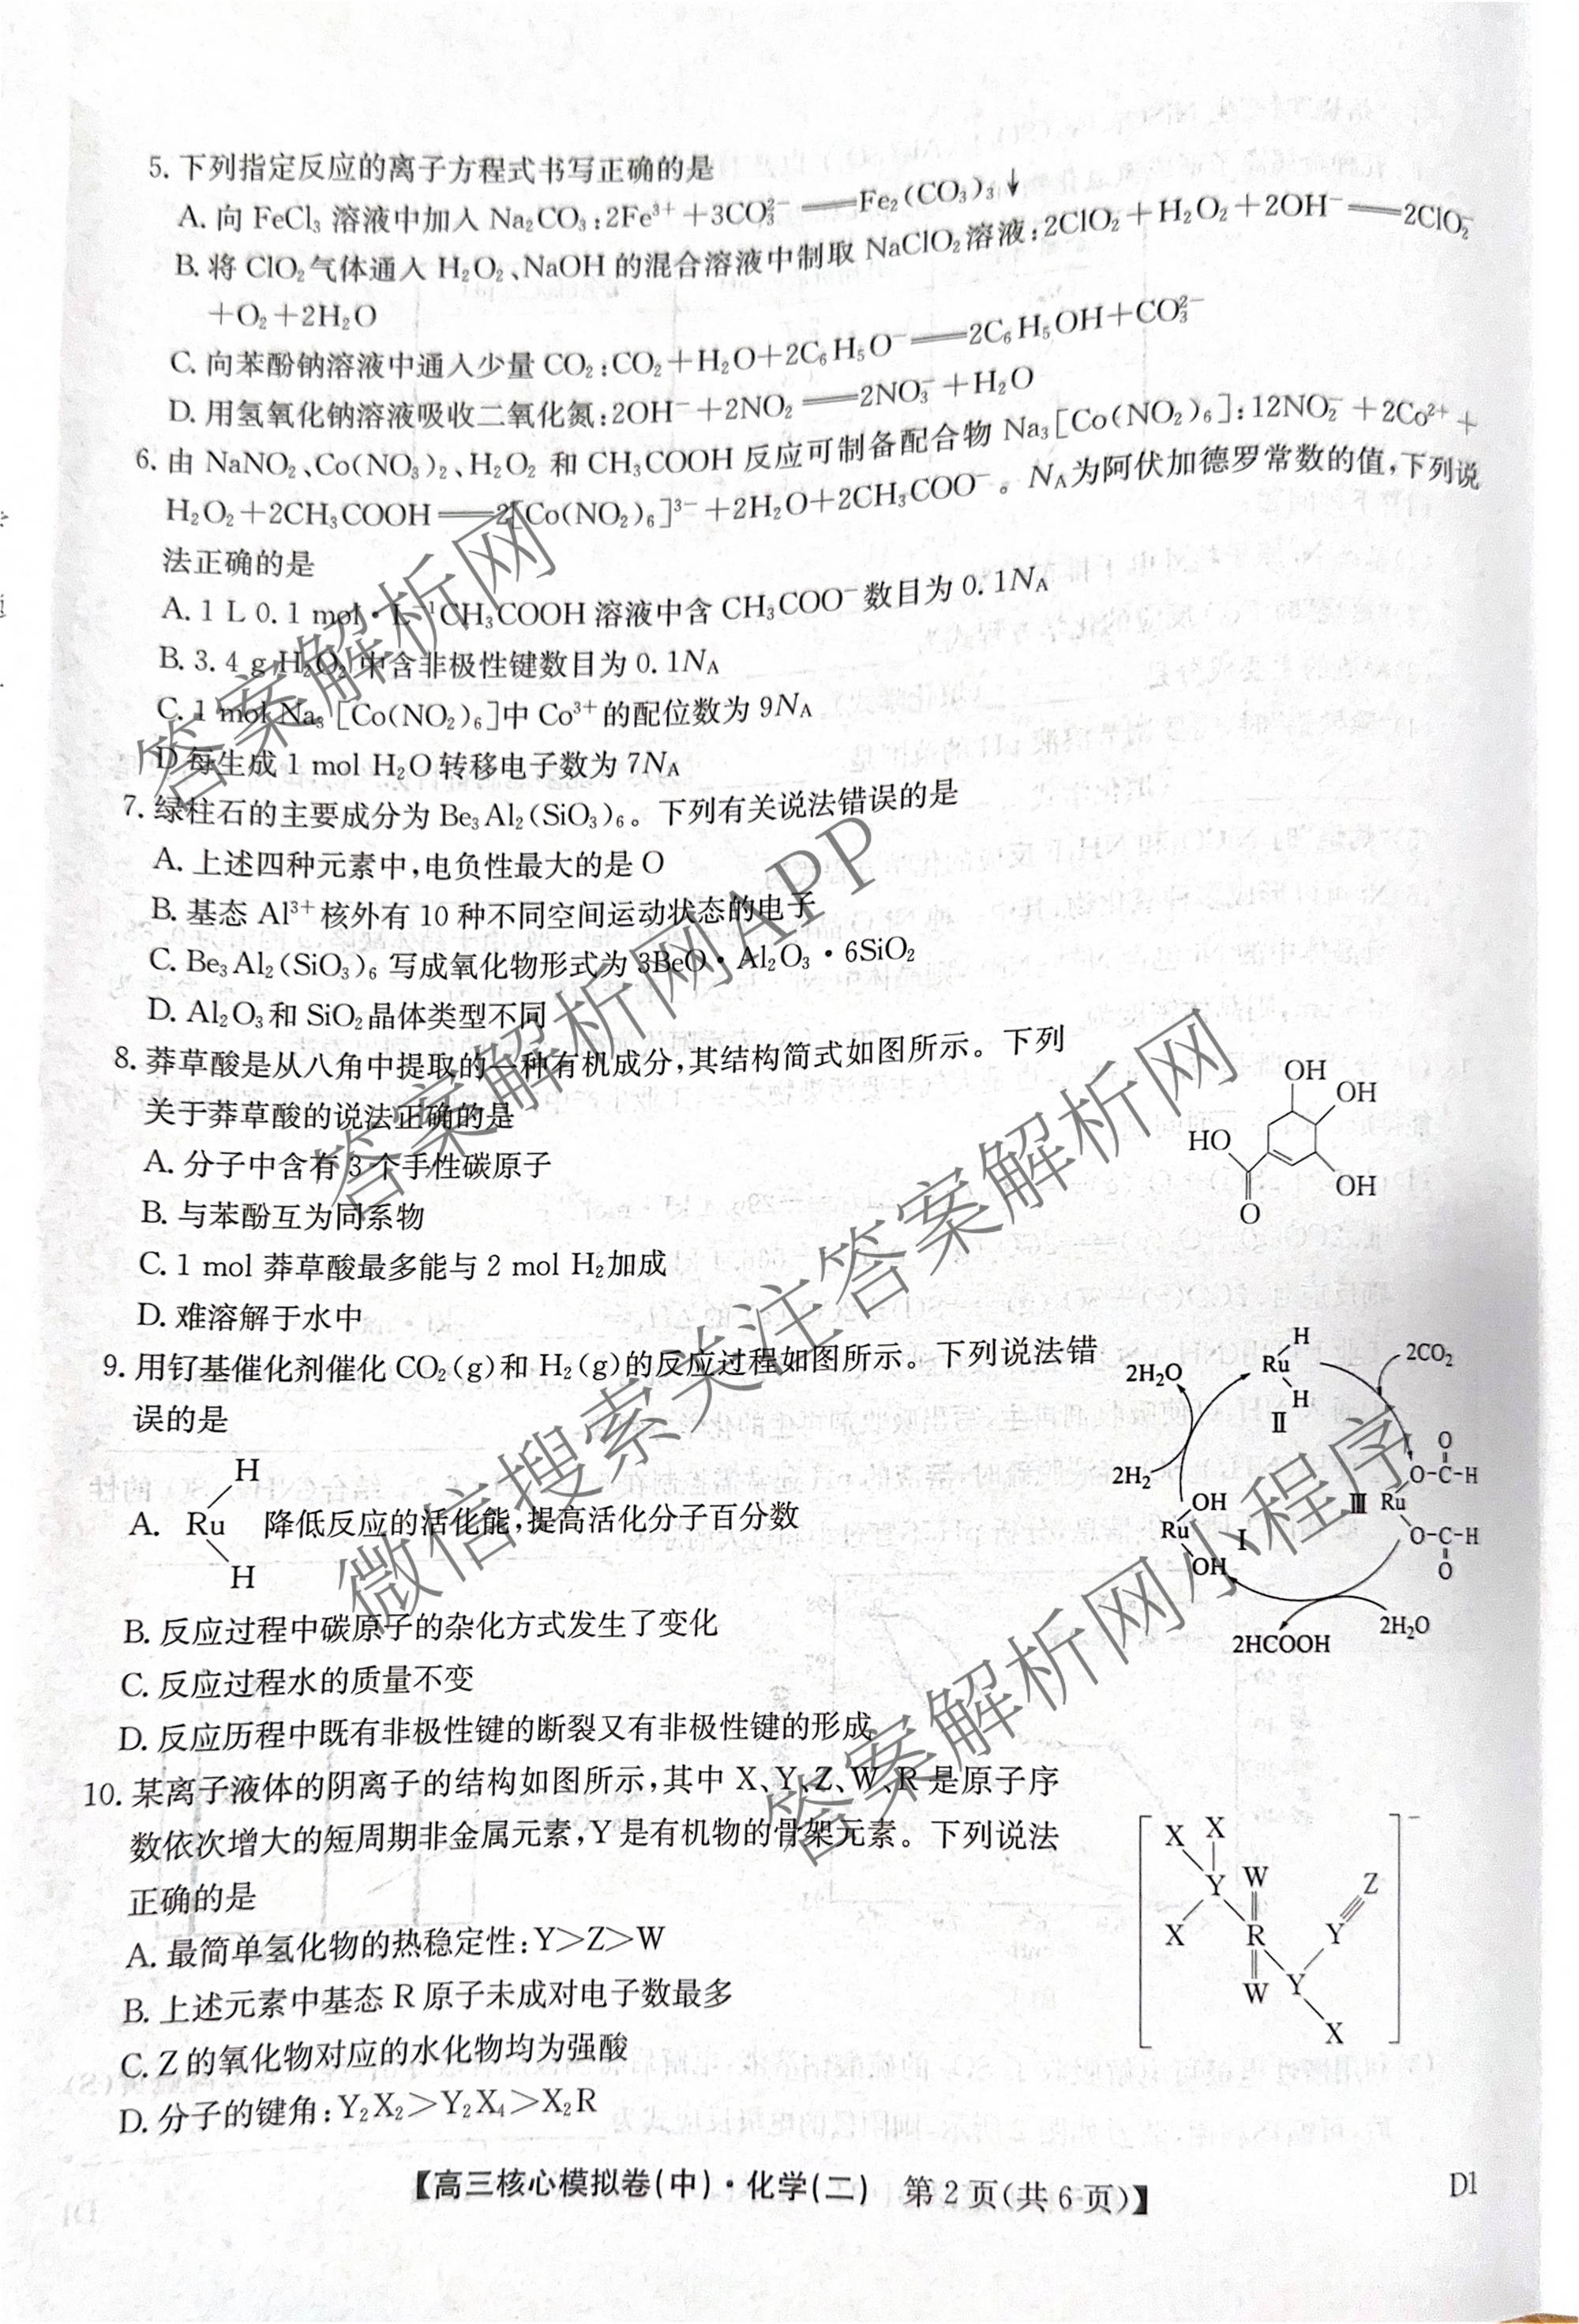 5. 下列指定反应的离子方程式书写正确的是
A. 向 FeCl₃ 溶液中加入 Na₂CO₃:2Fe³⁺+3CO₃²⁻══Fe₂(CO₃)₃↓
B. 将 ClO₂气体通入 H₂O₂、NaOH 的混合溶液中制取 NaClO₂溶液:2ClO₂+H₂O₂+2OH⁻══2ClO₂⁻
+O₂+2H₂O
C. 向苯酚钠溶液中通入少量 CO₂:CO₂+H₂O+2C₆H₅O⁻══2C₆H₅OH+CO₃²⁻
D. 用氢氧化钠溶液吸收二氧化氮:2OH⁻+2NO₂══2NO₃⁻+H₂O
6. 由 NaNO₂、Co(NO₃)₂、H₂O₂ 和 CH₃COOH 反应可制备配合物 Na₃[Co(NO₂)₆]:12NO₂⁻+2Co²⁺+
H₂O₂+2CH₃COOH══2[Co(NO₂)₆]³⁻+2H₂O+2CH₃COO⁻。Nᴀ为阿伏加德罗常数的值,下列说
法正确的是
A. 1 L 0. 1 mol·L⁻¹CH₃COOH 溶液中含 CH₃COO⁻数目为 0. 1Nᴀ
B. 3. 4 g H₂O₂ 中含非极性键数目为 0. 1Nᴀ
C. 1 mol Na₃[Co(NO₂)₆]中 Co³⁺的配位数为 9Nᴀ
D 每生成 1 mol H₂O 转移电子数为 7Nᴀ
7. 绿柱石的主要成分为 Be₃Al₂(SiO₃)₆。下列有关说法错误的是
A. 上述四种元素中,电负性最大的是 O
B. 基态 Al³⁺核外有 10 种不同空间运动状态的电子
C. Be₃Al₂(SiO₃)₆ 写成氧化物形式为 3BeO·Al₂O₃·6SiO₂
D. Al₂O₃和 SiO₂晶体类型不同
8. 莽草酸是从八角中提取的一种有机成分,其结构简式如图所示。下列
关于莽草酸的说法正确的是
A. 分子中含有 3 个手性碳原子
B. 与苯酚互为同系物
C. 1 mol 莽草酸最多能与 2 mol H₂加成
D. 难溶解于水中
OH
OH
HO
OH
O
9. 用钌基催化剂催化 CO₂(g)和 H₂(g)的反应过程如图所示。下列说法错
误的是
H
A. Ru 降低反应的活化能,提高活化分子百分数
H
B. 反应过程中碳原子的杂化方式发生了变化
C. 反应过程水的质量不变
D. 反应历程中既有非极性键的断裂又有非极性键的形成
H
2H₂O Ru 2CO₂
H
Ⅱ
O
2H₂ O-C-H
OH Ⅲ Ru
Ru Ⅰ O-C-H
OH O
2HCOOH 2H₂O
10. 某离子液体的阴离子的结构如图所示,其中 X、Y、Z、W、R 是原子序
数依次增大的短周期非金属元素,Y 是有机物的骨架元素。下列说法
正确的是
A. 最简单氢化物的热稳定性:Y>Z>W
B. 上述元素中基态 R 原子未成对电子数最多
C. Z 的氧化物对应的水化物均为强酸
D. 分子的键角:Y₂X₂>Y₂X₄>X₂R
X X
Y W Z
X R Y
W Y
X
−
【高三核心模拟卷(中)·化学(二) 第 2 页(共 6 页)】
D1
答案解析网
答案解析网APP
微信搜索关注答案解析网
答案解析网小程序